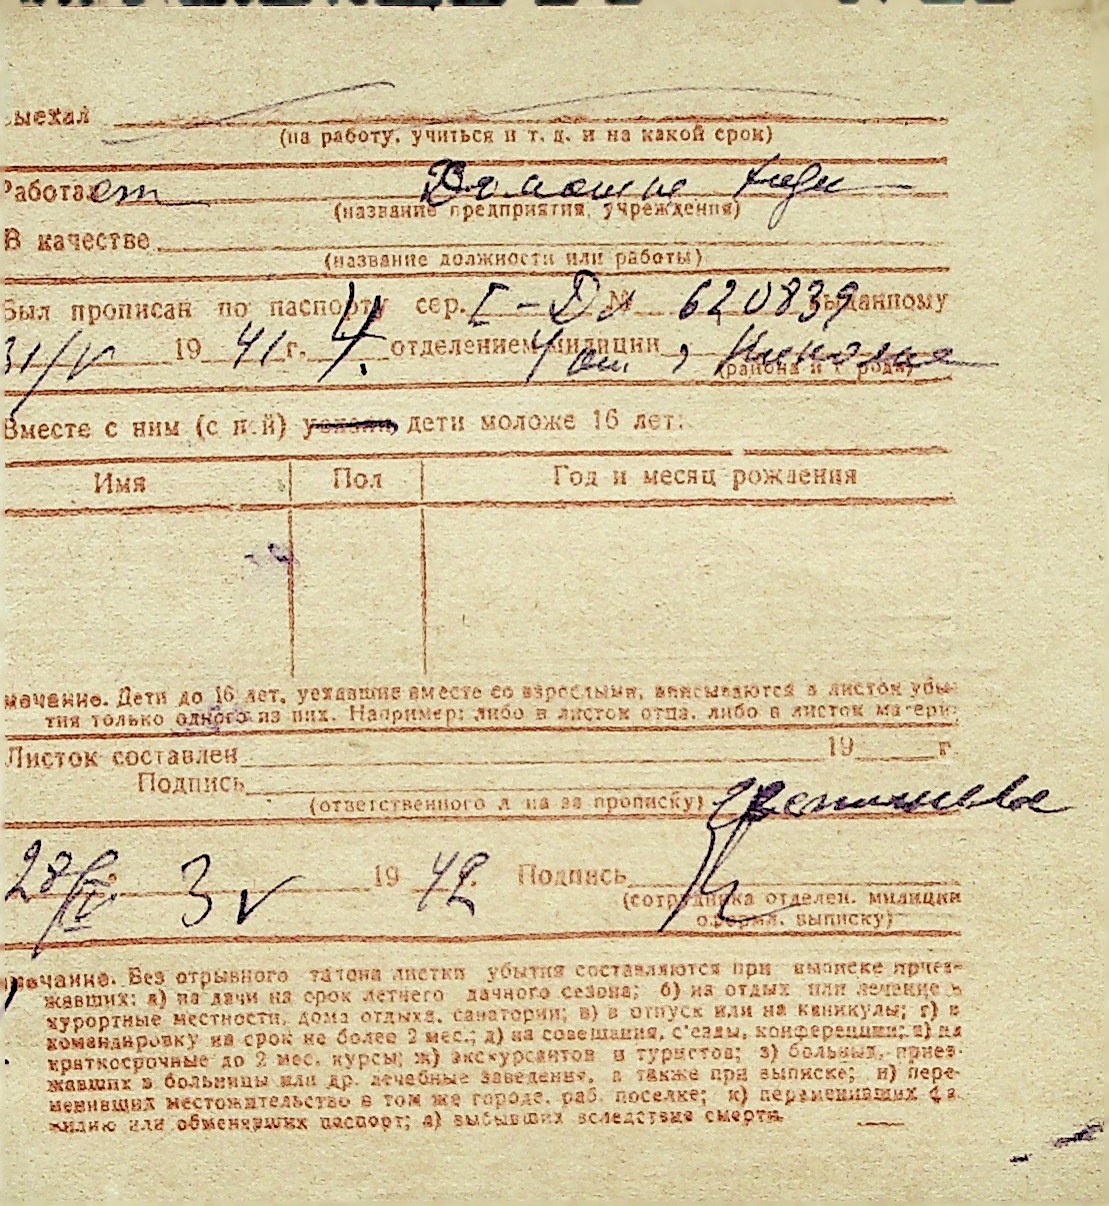 ыехал
(на работу, учиться и т. д. и на какой срок)
Работает
(название предприятия, учреждения)
В качестве
(название должности или работы)
Был прописан по паспорту сер. I-ДИ № 620839 выданному
31/V 1941 г. 4. отделением милиции 4 от, Николае
(района и города)
Вместе с ним (с ней) дети моложе 16 лет:
Имя Пол Год и месяц рождения
мечание. Дети до 16 лет, уехавшие вместе со взрослыми, вписываются в листок убы-
тия только одного из них. Например: либо в листок отца, либо в листок матери.
Листок составлен 19 г.
Подпись
(ответственного л на за прописку)
28/IV 3 V 1942. Подпись
(сотрудника отделен. милиции
оформл. выписку)
мечание. Без отрывного талона листки убытия составляются при выписке приез-
жавших: а) на дачи на срок летнего дачного сезона; б) на отдых или лечение в
курортные местности, дома отдыха, санатории; в) в отпуск или на каникулы; г) в
командировку на срок не более 2 мес.; д) на совещания, с'езды, конференции; е) на
краткосрочные до 2 мес. курсы; ж) экскурсантов и туристов; з) больных, приез-
жавших в больницы или др. лечебные заведения, а также при выписке; и) пере-
менивших местожительство в том же городе, раб. поселке; к) переменивших фа-
милию или обменявших паспорт; л) выбывших вследствие смерти.